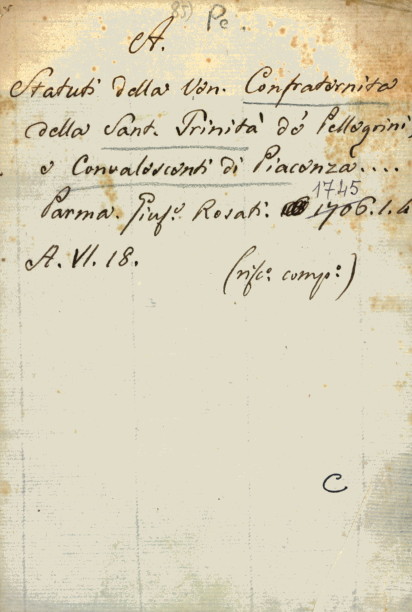 85) Pc
A.
Statuti della Ven. Confraternita
della Sant. Trinità de' Pellegrini,
e Convalescenti di Piacenza....
1745
Parma. Gius.e Rosati. 1706. 1. 4
A. VI. 18.
(risc.o comp.o)
C